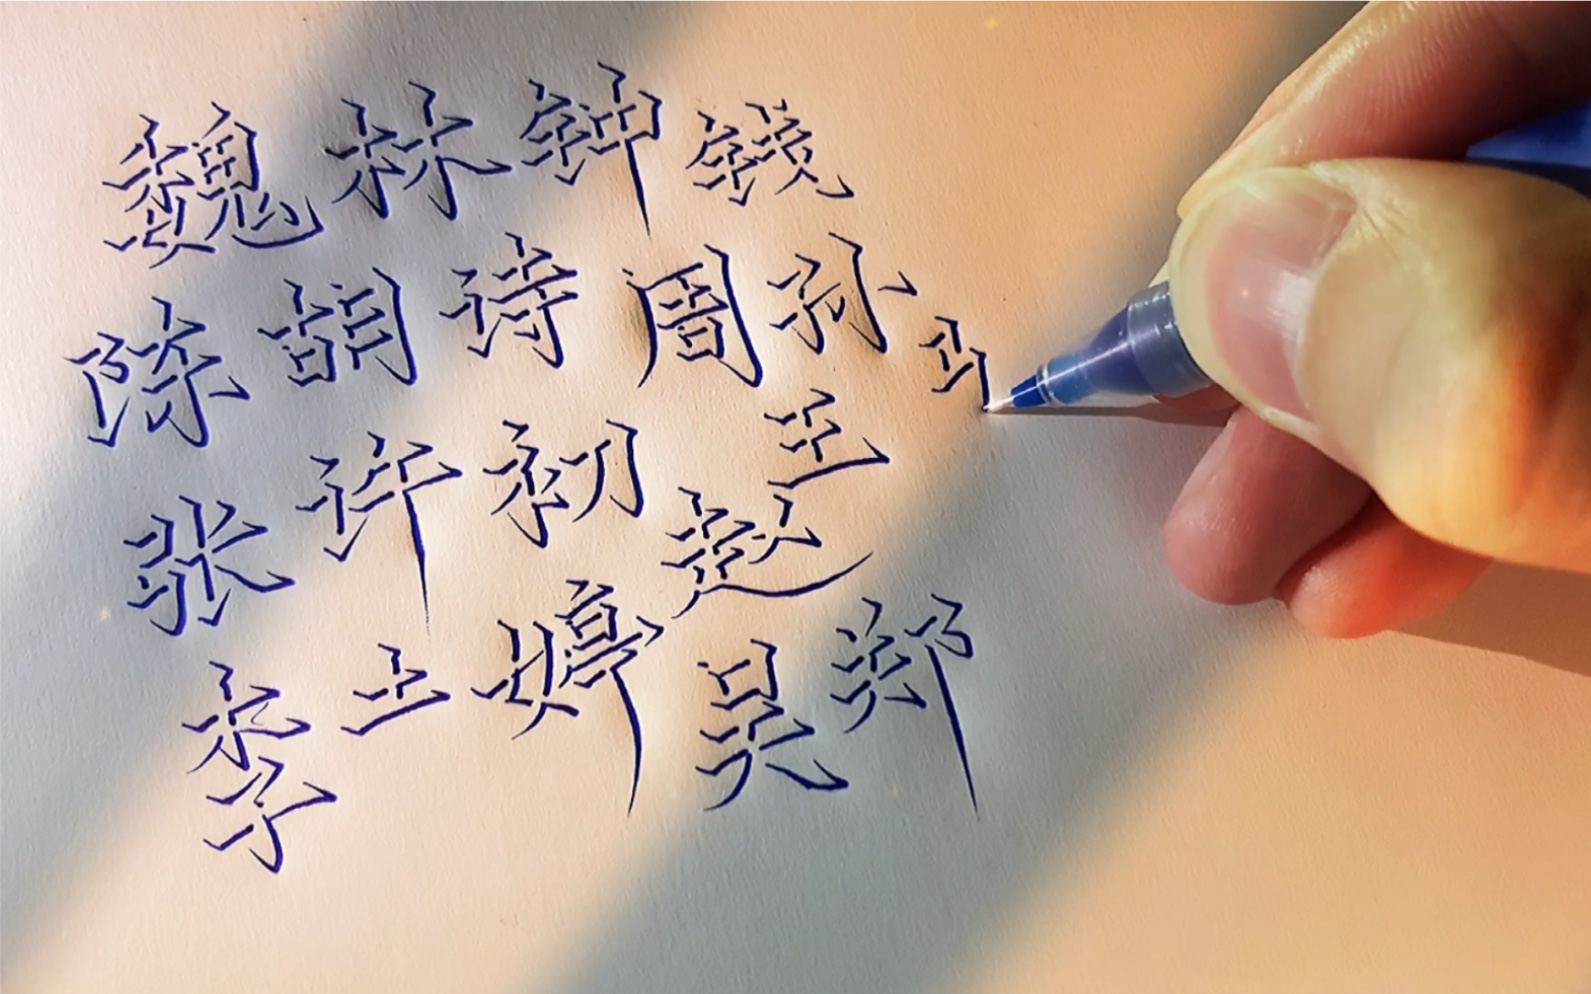 魏林钟钱
陈胡诗周孙马
张许初王
赵
李上婷吴郑